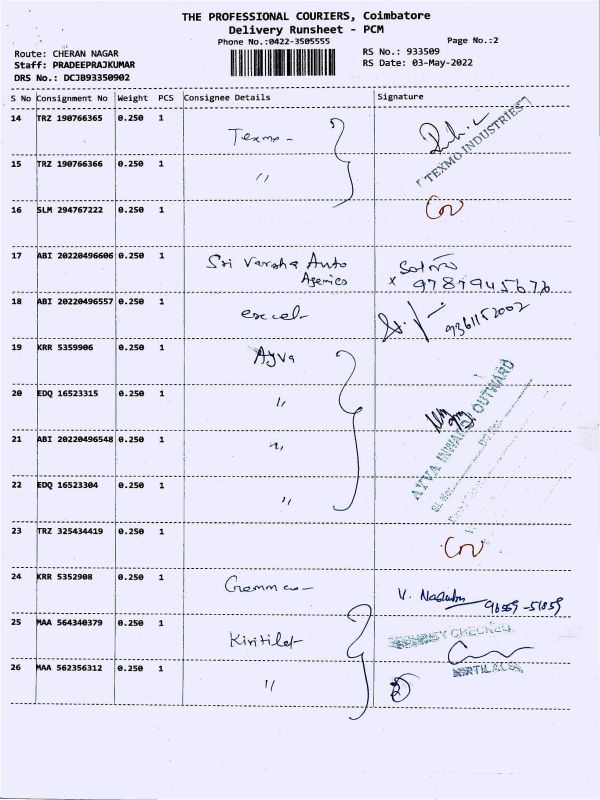 THE PROFESSIONAL COURIERS, Coimbatore
Delivery Runsheet - PCM
Phone No.:0422-3505555
Page No.:2
Route: CHERAN NAGAR
RS No.: 933509
Staff: PRADEEPRAJKUMAR
RS Date: 03-May-2022
DRS No.: DCJB93350902
S No Consignment No Weight PCS Consignee Details Signature
14 TRZ 190766365 0.250 1 Texmo -
TEXMO INDUSTRIES
15 TRZ 190766366 0.250 1 "
16 SLM 294767222 0.250 1
17 ABI 20220496606 0.250 1 Sri Varsha Auto
Agenices
18 ABI 20220496557 0.250 1 excel -
9361152002
19 KRR 5359906 0.250 1 Ayva
20 EDQ 16523315 0.250 1 "
AYVA INWARD OUTWARD
21 ABI 20220496548 0.250 1 "
22 EDQ 16523304 0.250 1 "
23 TRZ 325434419 0.250 1
24 KRR 5352908 0.250 1
25 MAA 564340379 0.250 1 Kirtilal -
KIRTILALS
26 MAA 562356312 0.250 1 "